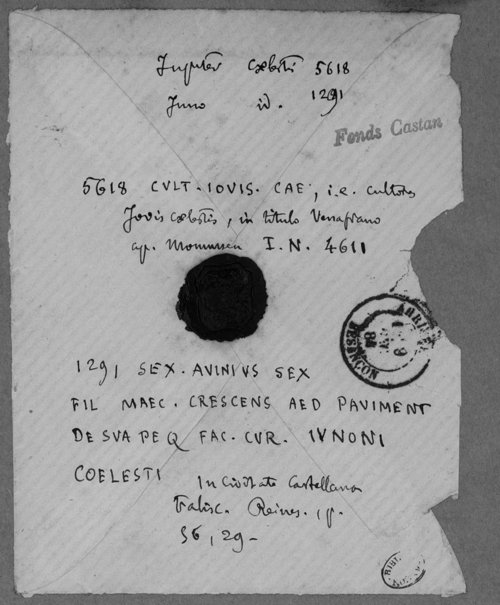 Jupiter Cœlestis 5618
Juno id. 1291
Fonds Castan
5618 CVLT. IOVIS. CAE, i.e. cultores
Jovis cœlestis, in titulo Venafrano
ap. Mommsen I.N. 4611
BESANÇON
1291 SEX. AVINIVS SEX
FIL MAEC. CRESCENS AED PAVIMENT
DE SVA PEQ FAC. CVR. IVNONI
COELESTI In Civitate Castellana
Falisc. Reines. , p.
56, 29-